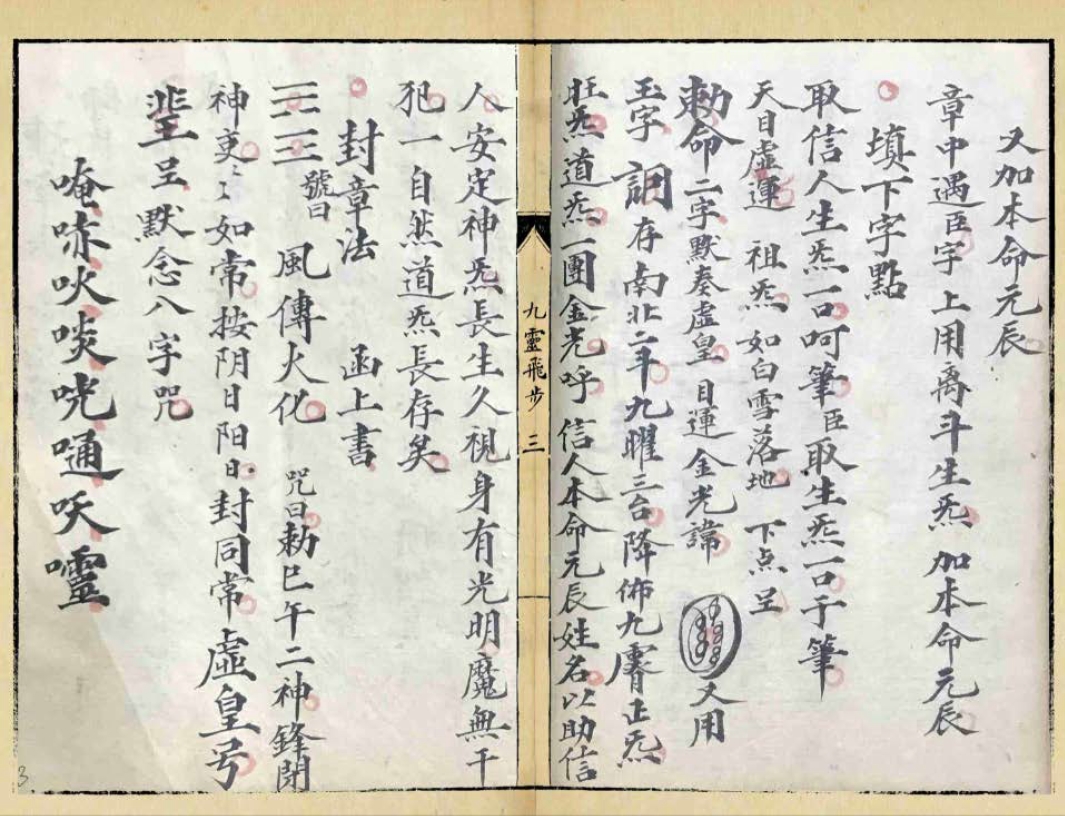 又加本命元辰
章中遇臣字上用禹斗生炁加本命元辰
填下字點
取信人生炁一口呵筆臣取生炁一口于筆
天目虛運 祖炁如白雪落地 下点呈
勅命二字默奏虛皇目運金光諱 又用
玉字 詷存南北二斗九曜三台降佈九霄正炁
旺炁道炁一團金光呼信人本命元辰姓名以助信
九靈飛步 三
人安定神炁長生久視身有光明魔無干
犯一自然道炁長存矣
封章法 函上書
三三 號曰 風傳火化 咒曰勅巳午二神鋒閉
神吏〻如常按阴日阳日封同常虛皇号
呈默念八字咒
唵㖠吙啖咣嗵㕭㘋
3